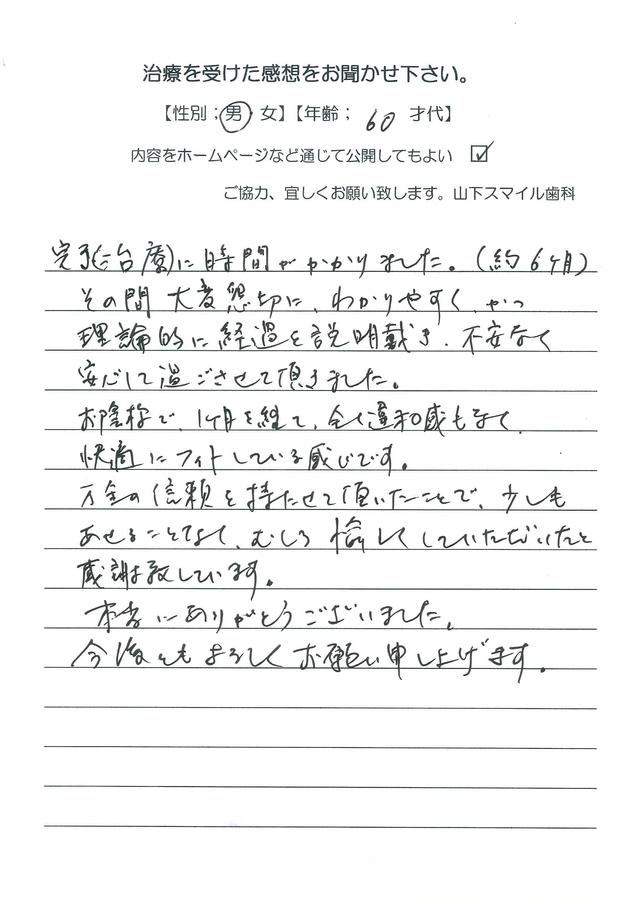 治療を受けた感想をお聞かせ下さい。
【性別；男・女】【年齢； 60 才代】
内容をホームページなど通じて公開してもよい ☑
ご協力、宜しくお願い致します。山下スマイル歯科
完了(治療)に時間がかかりました。(約6ヶ月)
その間 大変懇切に、わかりやすく、かつ
理論的に経過を説明戴き、不安なく
安心して過ごさせて頂きました。
お陰様で、1ヶ月を経て、全く違和感もなく、
快適にフィットしている感じです。
万全の信頼を持たせて頂いたことで、少しも
あせることなく、むしろ愉しくしていただいたと
感謝致しています。
本当にありがとうございました。
今後ともよろしくお願い申し上げます。